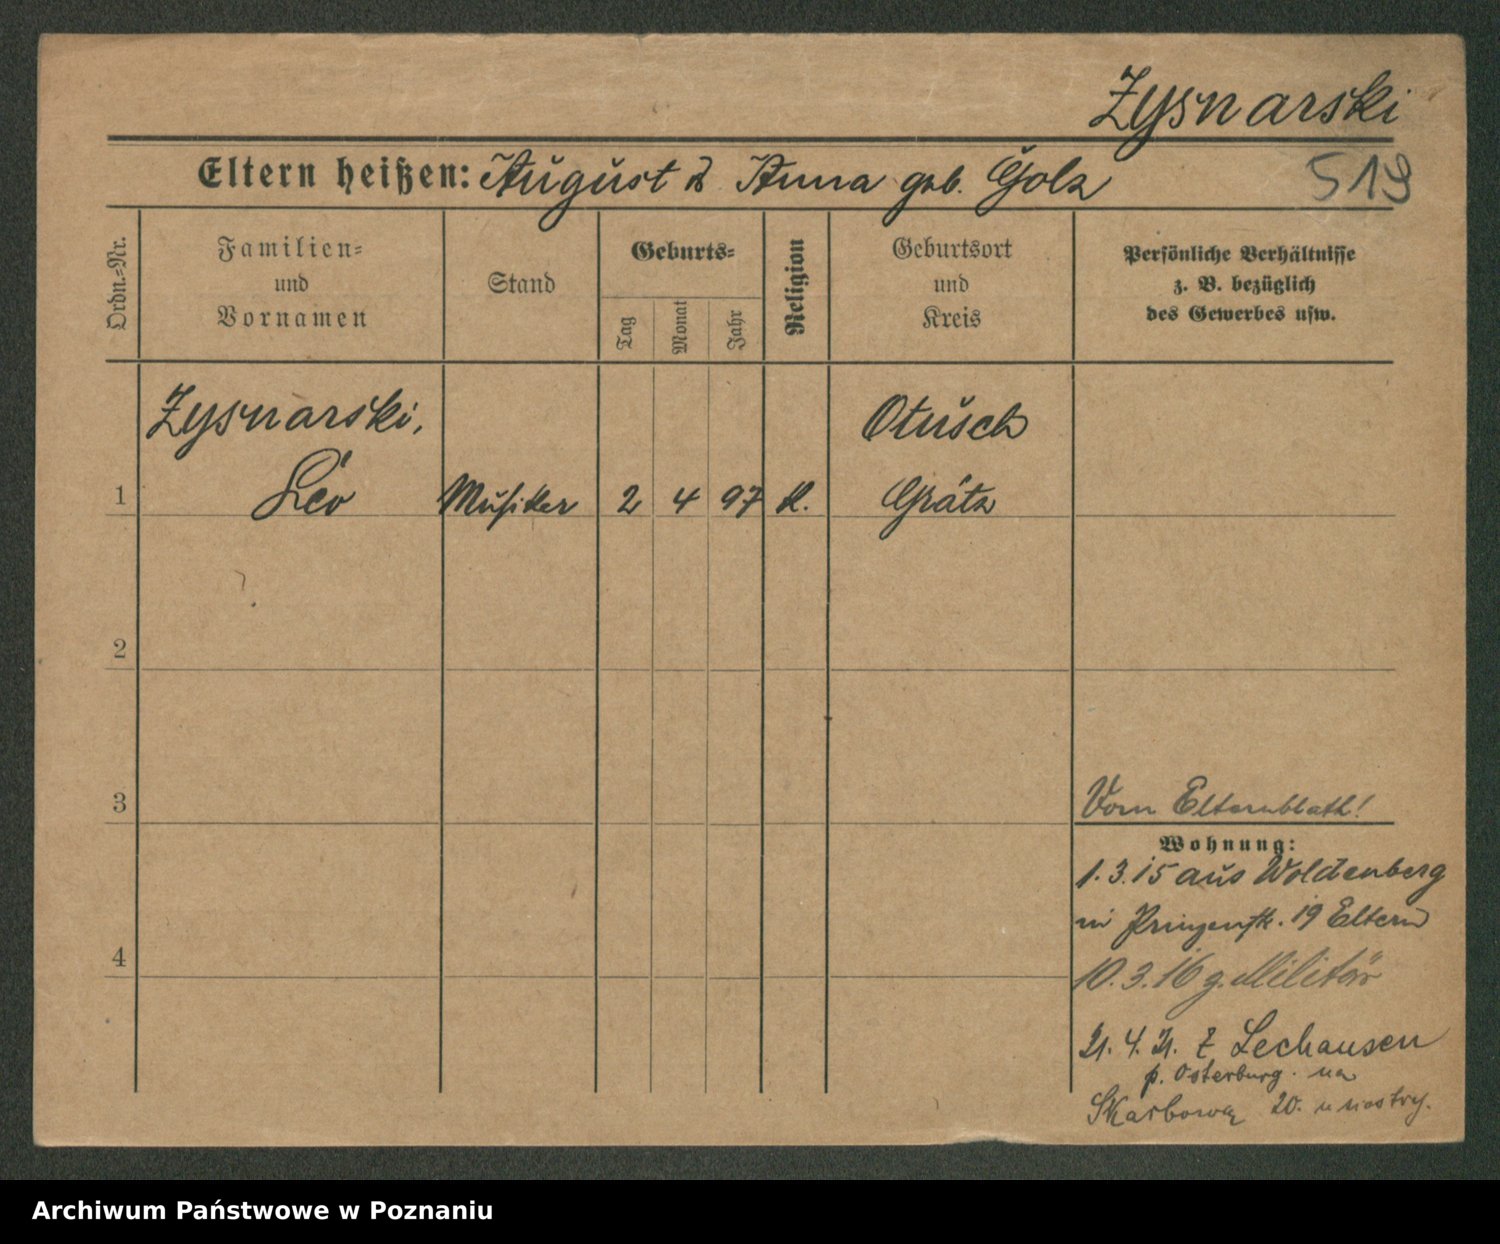 Zysnarski
519
Eltern heißen: August & Anna geb. Golz
Ordn.=Nr.
Familien=
und
Vornamen
Stand
Geburts=
Tag
Monat
Jahr
Religion
Geburtsort
und
Kreis
Persönliche Verhältnisse
z. B. bezüglich
des Gewerbes usw.
Zysnarski,
Leo
1
Musiker
2 4 97 K.
Otusch
Grätz
2
3
4
Vom Elternblatt!
Wohnung:
1.3.15 aus Woldenberg
in Prinzenstr. 19 Eltern
10.3.16 z. Militär
21.4.21. z Lechausen
p. Osterburg. na
Skarbową 20. u siostry.
Archiwum Państwowe w Poznaniu